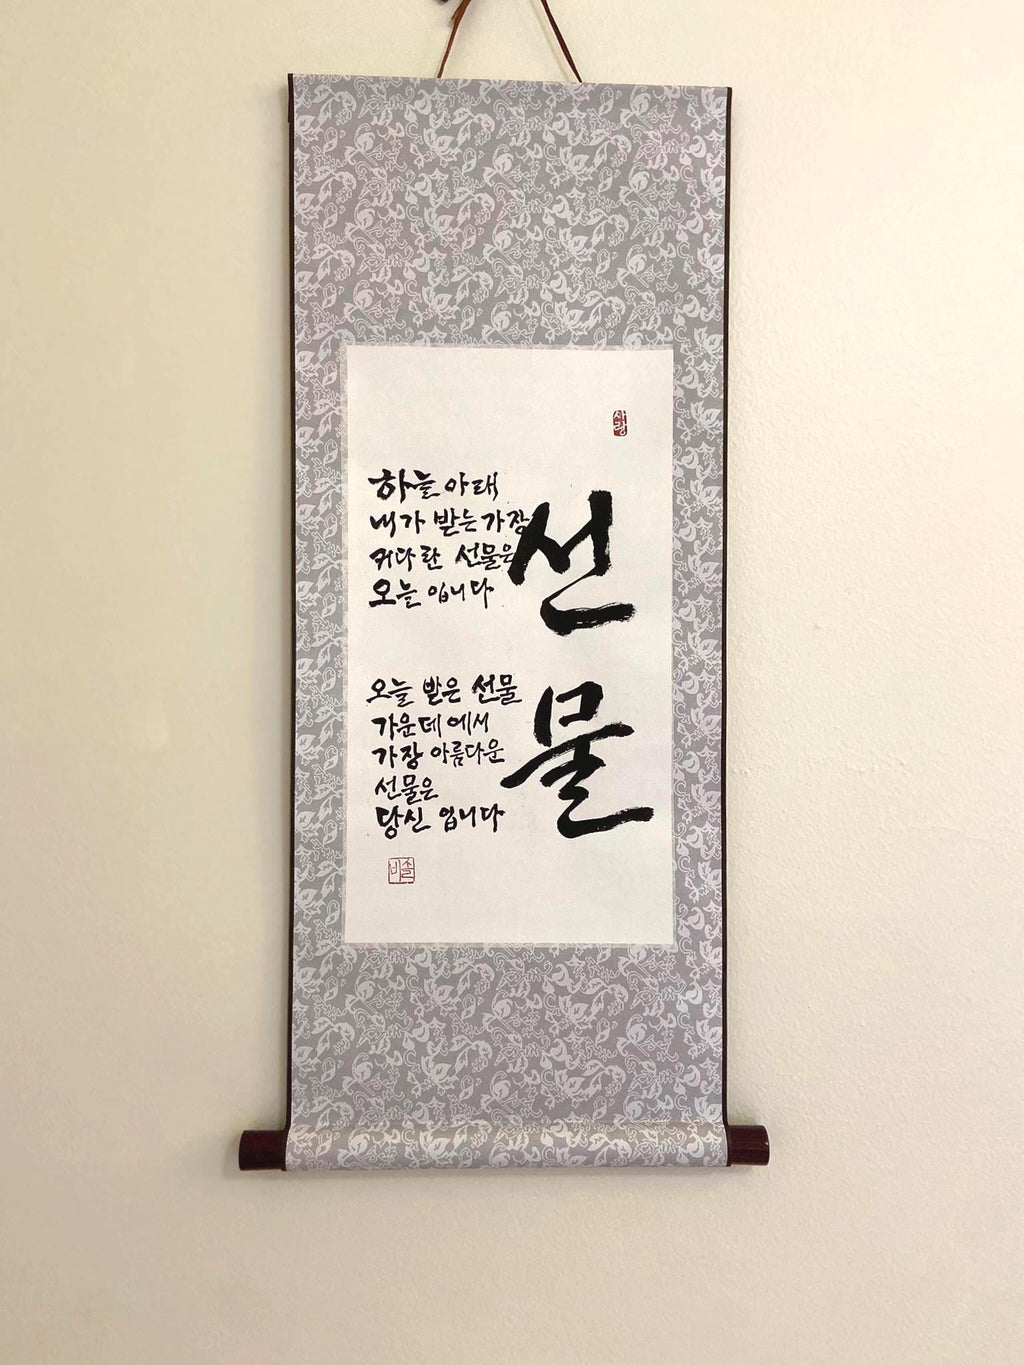 사랑
선물
하늘 아래
내가 받는 가장
커다란 선물은
오늘 입니다
오늘 받은 선물
가운데에서
가장 아름다운
선물은
당신 입니다